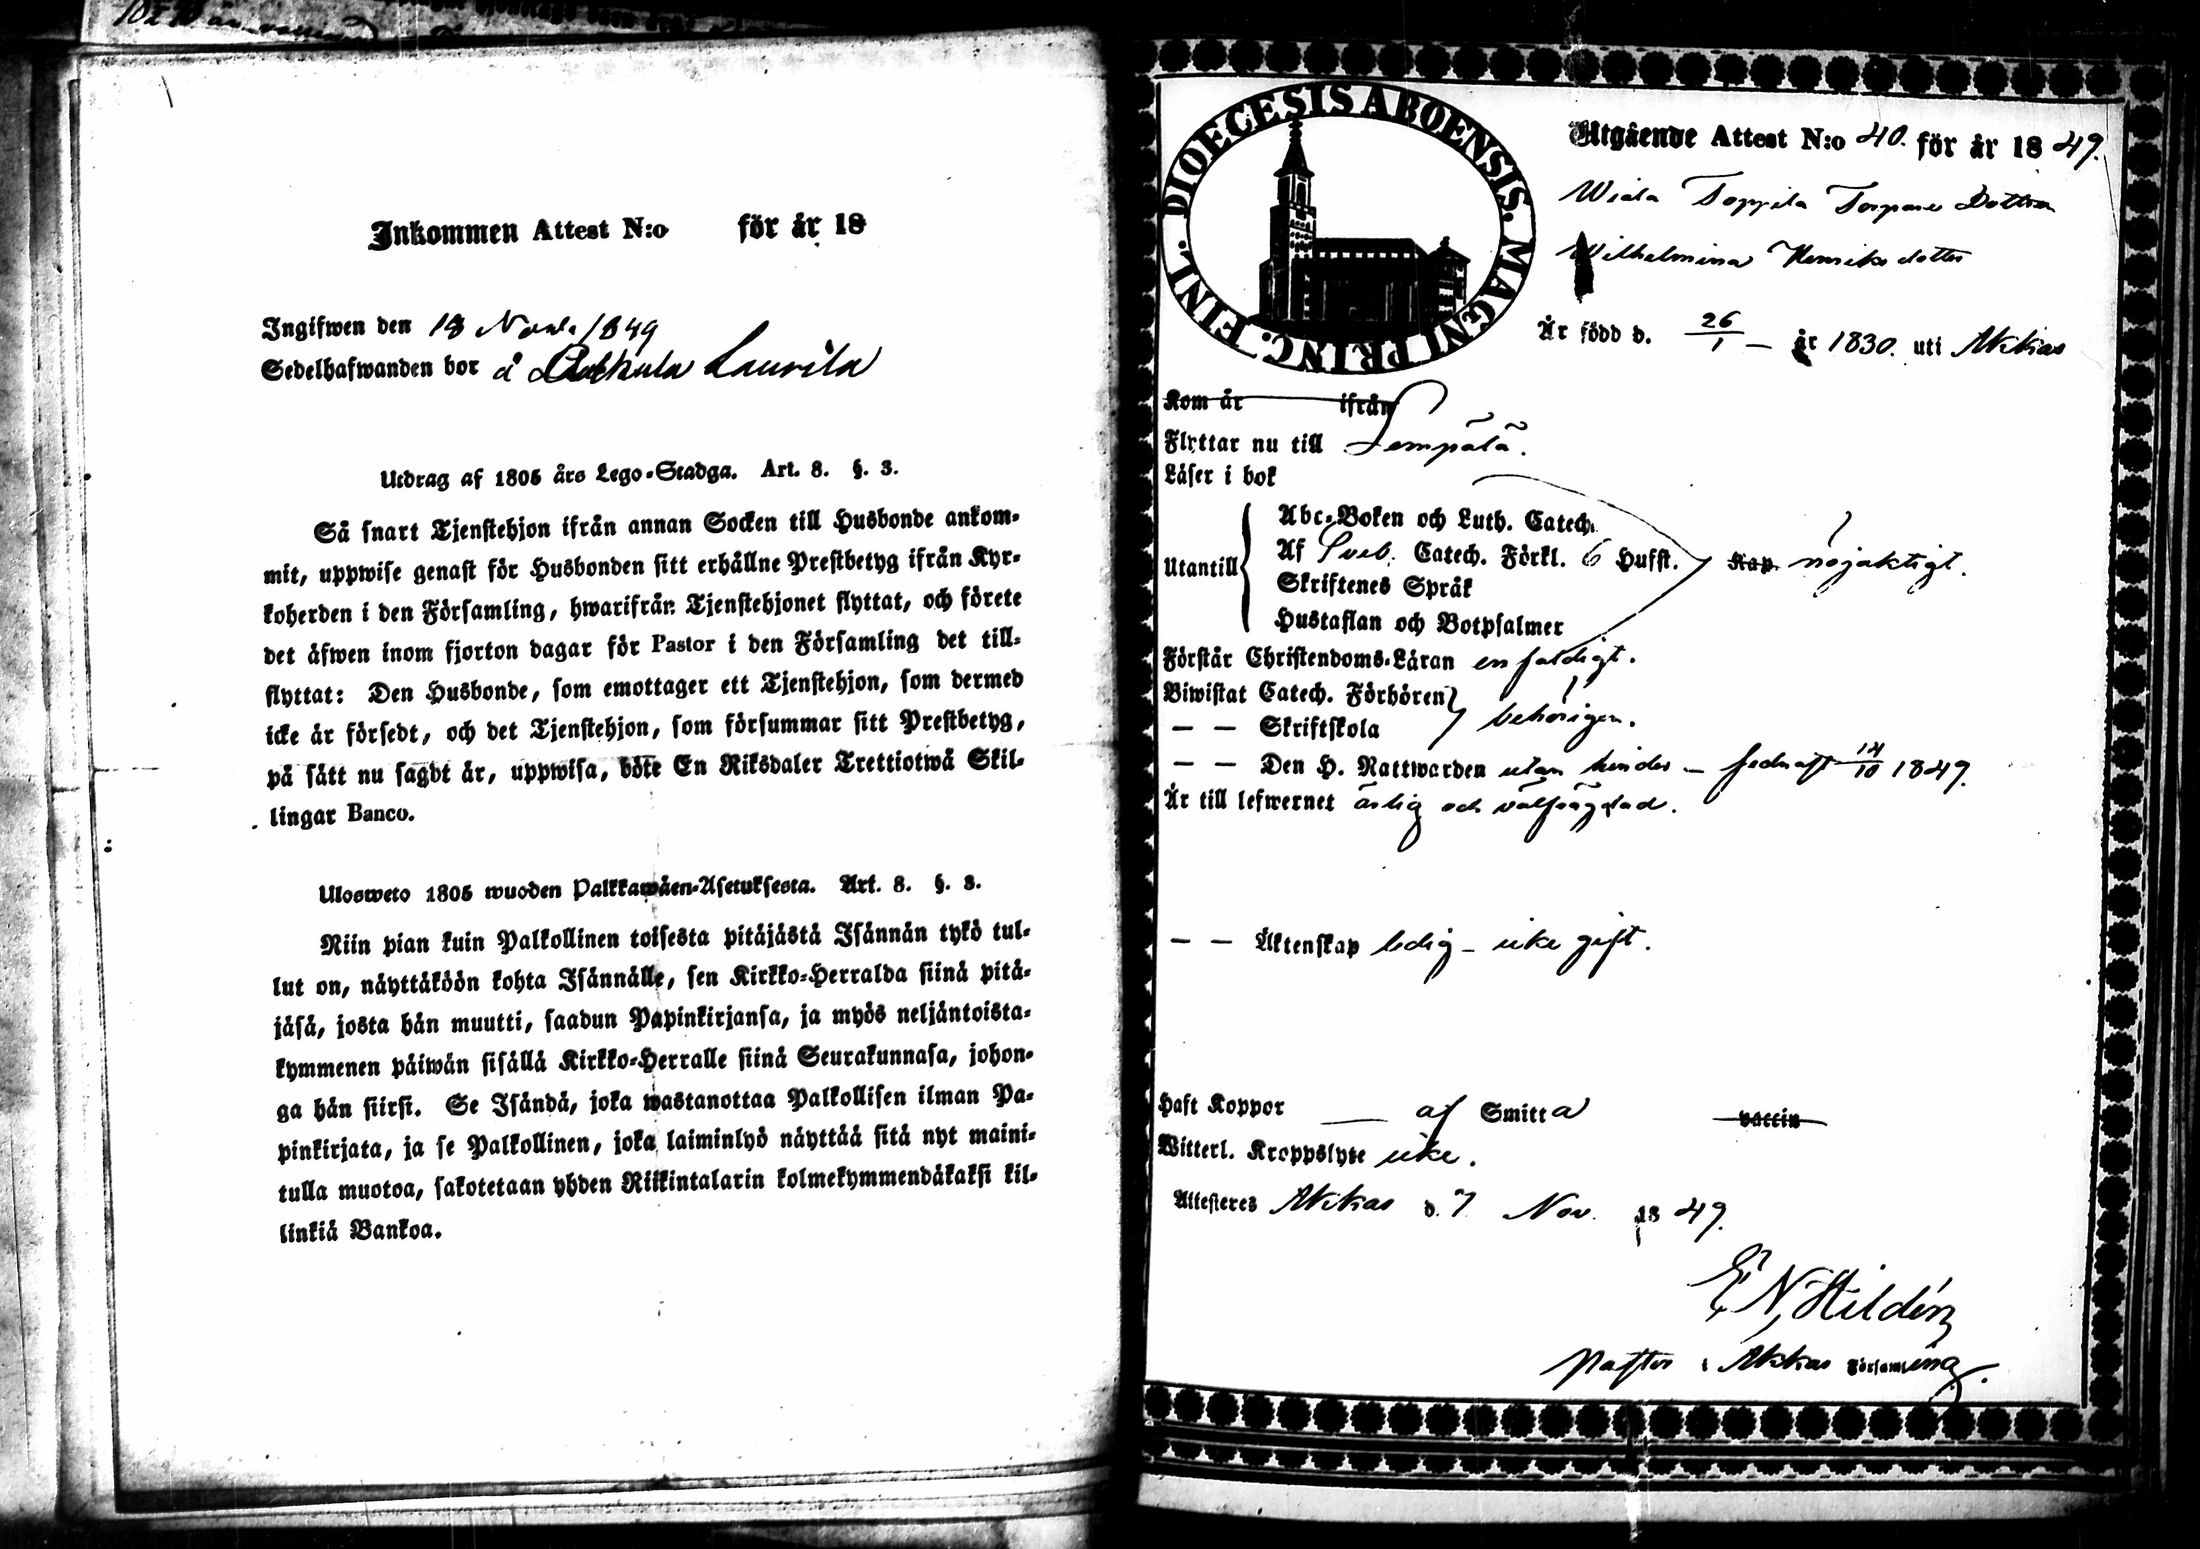 Inkommen Attest N:o för år 18
Ingifwen den 18 Nov. 1849
Sedelhafwanden bor å Laurila
Utdrag af 1805 års Lego-Stadga. Art. 8. §. 3.
Så snart Tjenstehjon ifrån annan Socken till Husbonde ankom-
mit, uppwise genast för Husbonden sitt erhållne Prestbetyg ifrån Kyr-
koherden i den Församling, hwarifrån Tjenstehjonet flyttat, och förete
det äfwen inom fjorton dagar för Pastor i den Församling det till-
flyttat: Den Husbonde, som emottager ett Tjenstehjon, som dermed
icke är försedt, och det Tjenstehjon, som försummar sitt Prestbetyg,
på sätt nu sagdt är, uppwisa, böte En Riksdaler Trettiotwå Skil-
lingar Banco.
Ulosweto 1805 wuoden Palkkawäen-Asetuksesta. Art. 8. §. 3.
Niin pian kuin Palkollinen toisesta pitäjästä Isännän tykö tul-
lut on, näyttäköön kohta Isännälle, sen Kirkko-Herralda siinä pitä-
jäsä, josta hän muutti, saadun Papinkirjansa, ja myös neljäntoista-
kymmenen päiwän sisällä Kirkko-Herralle siinä Seurakunnasa, johon-
ga hän siirsi. Se Isändä, joka wastanottaa Palkollisen ilman Pa-
pinkirjata, ja se Palkollinen, joka laiminlyö näyttää sitä nyt maini-
tulla muotoa, sakotetaan yhden Riikintalarin kolmekymmendäkaksi kil-
linkiä Bankoa.
DIOECESIS ABOENSIS. MAGNI PRINC. FINL.
Utgående Attest N:o 40. för år 1849.
Toppila Torpare Dottren
Wilhelmina Henriksdotter
Är född d. 26/1 – år 1830. uti Akkas
Kom år ifrån
Flyttar nu till Lempälä.
Läser i bok
Utantill
Abc-Boken och Luth. Catech.
Af Sveb. Catech. Förkl. 6 Hufst. Kap. nöjaktigt.
Skriftenes Språk
Hustaflan och Botpsalmer
Förstår Christendoms-Läran enfaldigt.
Biwistat Catech. Förhören
— — Skriftskola behörigen.
— — Den H. Nattwarden utan hinder – sednast 14/10 1849.
Är till lefwernet ärlig och välfrägdad.
— — Äktenskap ledig – icke gift.
Haft Koppor — af Smitta vaccin
Witterl. Kroppslyte icke.
Attesteres Akkas d. 7 Nov. 1849.
E N Hildén
Pastor i Akkas Församling.